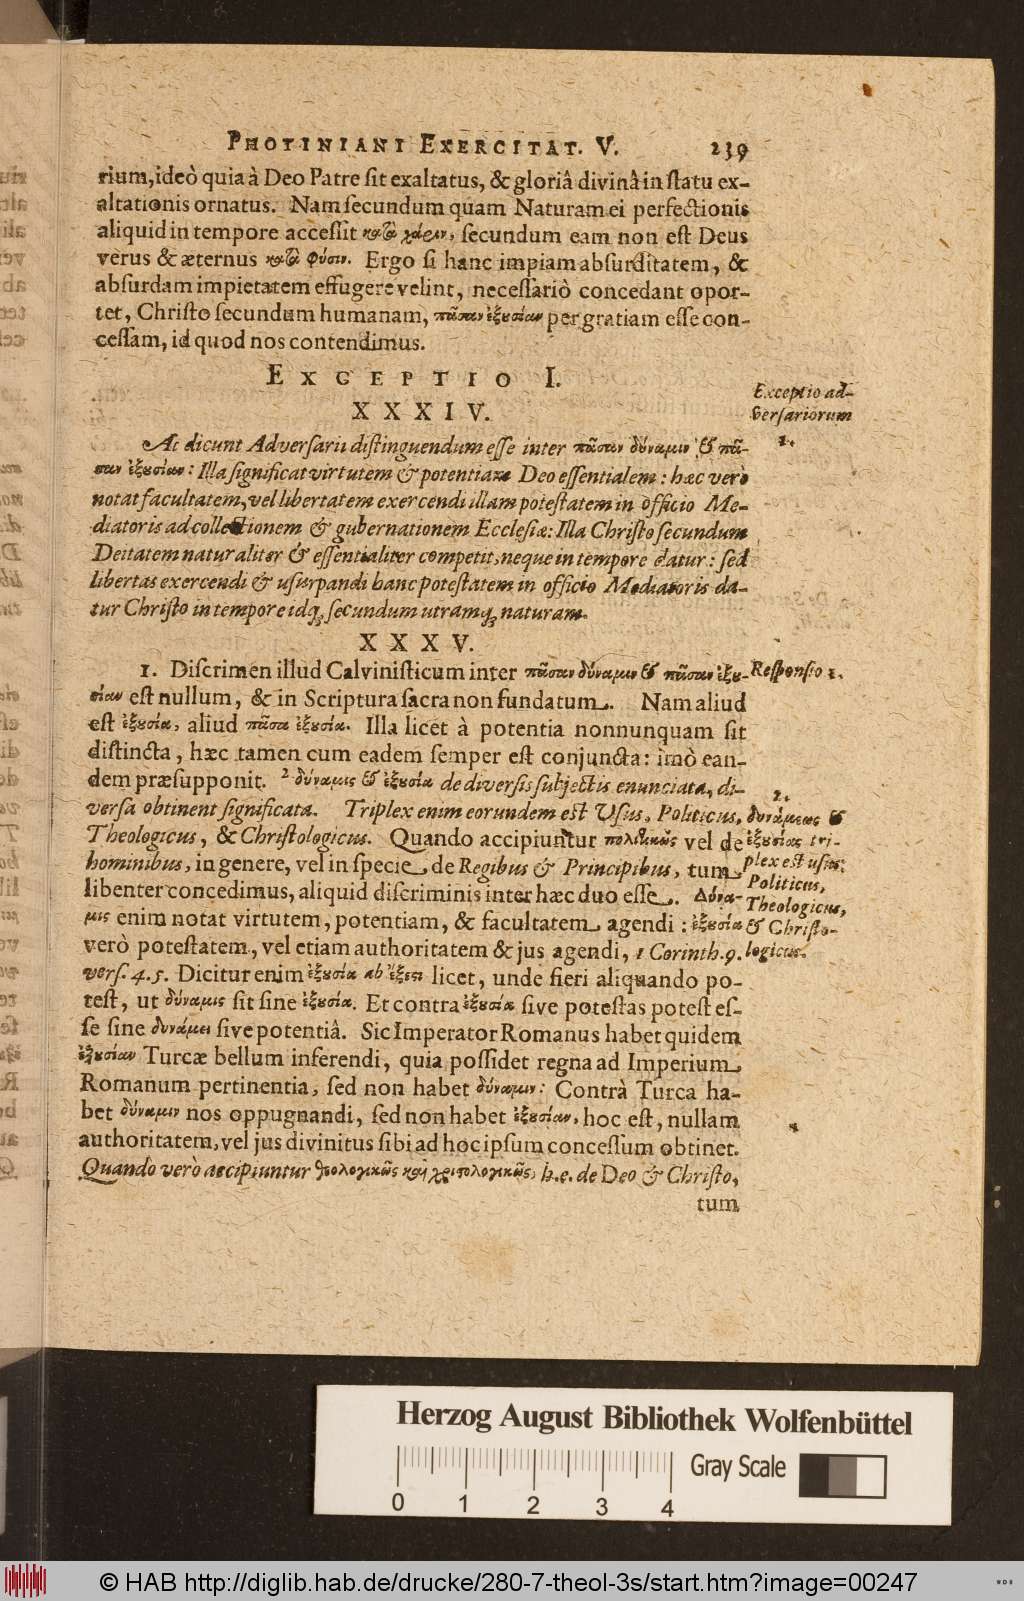 PHOTINIANI EXERCITAT. V. 239
rium, ideò quia à Deo Patre sit exaltatus, & gloriâ divinâ in statu ex-
altationis ornatus. Nam secundum quam Naturam ei perfectionis
aliquid in tempore accessit κατὰ χάριν, secundum eam non est Deus
verus & æternus κατὰ φύσιν. Ergo si hanc impiam absurditatem, &
absurdam impietatem effugere velint, necessariò concedant opor-
tet, Christo secundum humanam, πᾶσαν ἐξουσίαν per gratiam esse con-
cessam, id quod nos contendimus.
EXCEPTIO I.
XXXIV.
Exceptio ad-
versariorum
1.
At dicunt Adversarii distinguendum esse inter πᾶσαν δύναμιν & πᾶ-
σαν ἐξουσίαν: Illa significat virtutem & potentiam Deo essentialem: hæc verò
notat facultatem, vel libertatem exercendi illam potestatem in officio Me-
diatoris ad collectionem & gubernationem Ecclesiæ: Illa Christo secundum
Deitatem naturaliter & essentialiter competit, neque in tempore datur: sed
libertas exercendi & usurpandi hanc potestatem in officio Mediatoris da-
tur Christo in tempore idq; secundum utramq; naturam.
XXXV.
1. Discrimen illud Calvinisticum inter πᾶσαν δύναμιν & πᾶσαν ἐξου-
Responsio 1.
σίαν est nullum, & in Scriptura sacra non fundatum. Nam aliud
est ἐξουσία, aliud πᾶσα ἐξουσία. Illa licet à potentia nonnunquam sit
distincta, hæc tamen cum eadem semper est conjuncta: imò ean-
dem præsupponit. 2 δύναμις & ἐξουσία de diversis subjectis enunciata, di-
versa obtinent significata. Triplex enim eorundem est Usus, Politicus,
Theologicus, & Christologicus. Quando accipiuntur πολιτικῶς vel de
hominibus, in genere, vel in specie de Regibus & Principibus, tum
libenter concedimus, aliquid discriminis inter hæc duo esse. Δύνα-
μις enim notat virtutem, potentiam, & facultatem agendi: ἐξουσία
verò potestatem, vel etiam authoritatem & jus agendi, 1 Corinth. 9.
2.
δυνάμεως &
ἐξουσίας tri-
plex est usus:
Politicus,
Theologicus,
& Christo-
logicus.
vers. 4. 5. Dicitur enim ἐξουσία ab ἔξεστι licet, unde fieri aliquando po-
test, ut δύναμις sit sine ἐξουσία. Et contra ἐξουσία sive potestas potest es-
se sine δυνάμει sive potentiâ. Sic Imperator Romanus habet quidem
ἐξουσίαν Turcæ bellum inferendi, quia possidet regna ad Imperium
Romanum pertinentia, sed non habet δύναμιν: Contrà Turca ha-
bet δύναμιν nos oppugnandi, sed non habet ἐξουσίαν, hoc est, nullam
authoritatem, vel jus divinitus sibi ad hoc ipsum concessum obtinet.
Quando verò accipiuntur θεολογικῶς καὶ χριστολογικῶς, h. e. de Deo & Christo,
tum
Herzog August Bibliothek Wolfenbüttel
Gray Scale
0 1 2 3 4
© HAB http://diglib.hab.de/drucke/280-7-theol-3s/start.htm?image=00247